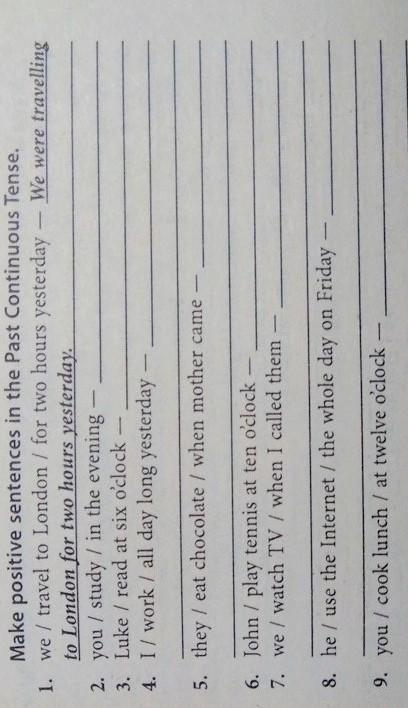 Make positive sentences in the Past Continuous Tense.
1. we / travel to London / for two hours yesterday — We were travelling
to London for two hours yesterday.
2. you / study / in the evening —
3. Luke / read at six o'clock —
4. I / work / all day long yesterday —
5. they / eat chocolate / when mother came —
6. John / play tennis at ten o'clock —
7. we / watch TV / when I called them —
8. he / use the Internet / the whole day on Friday —
9. you / cook lunch / at twelve o'clock —